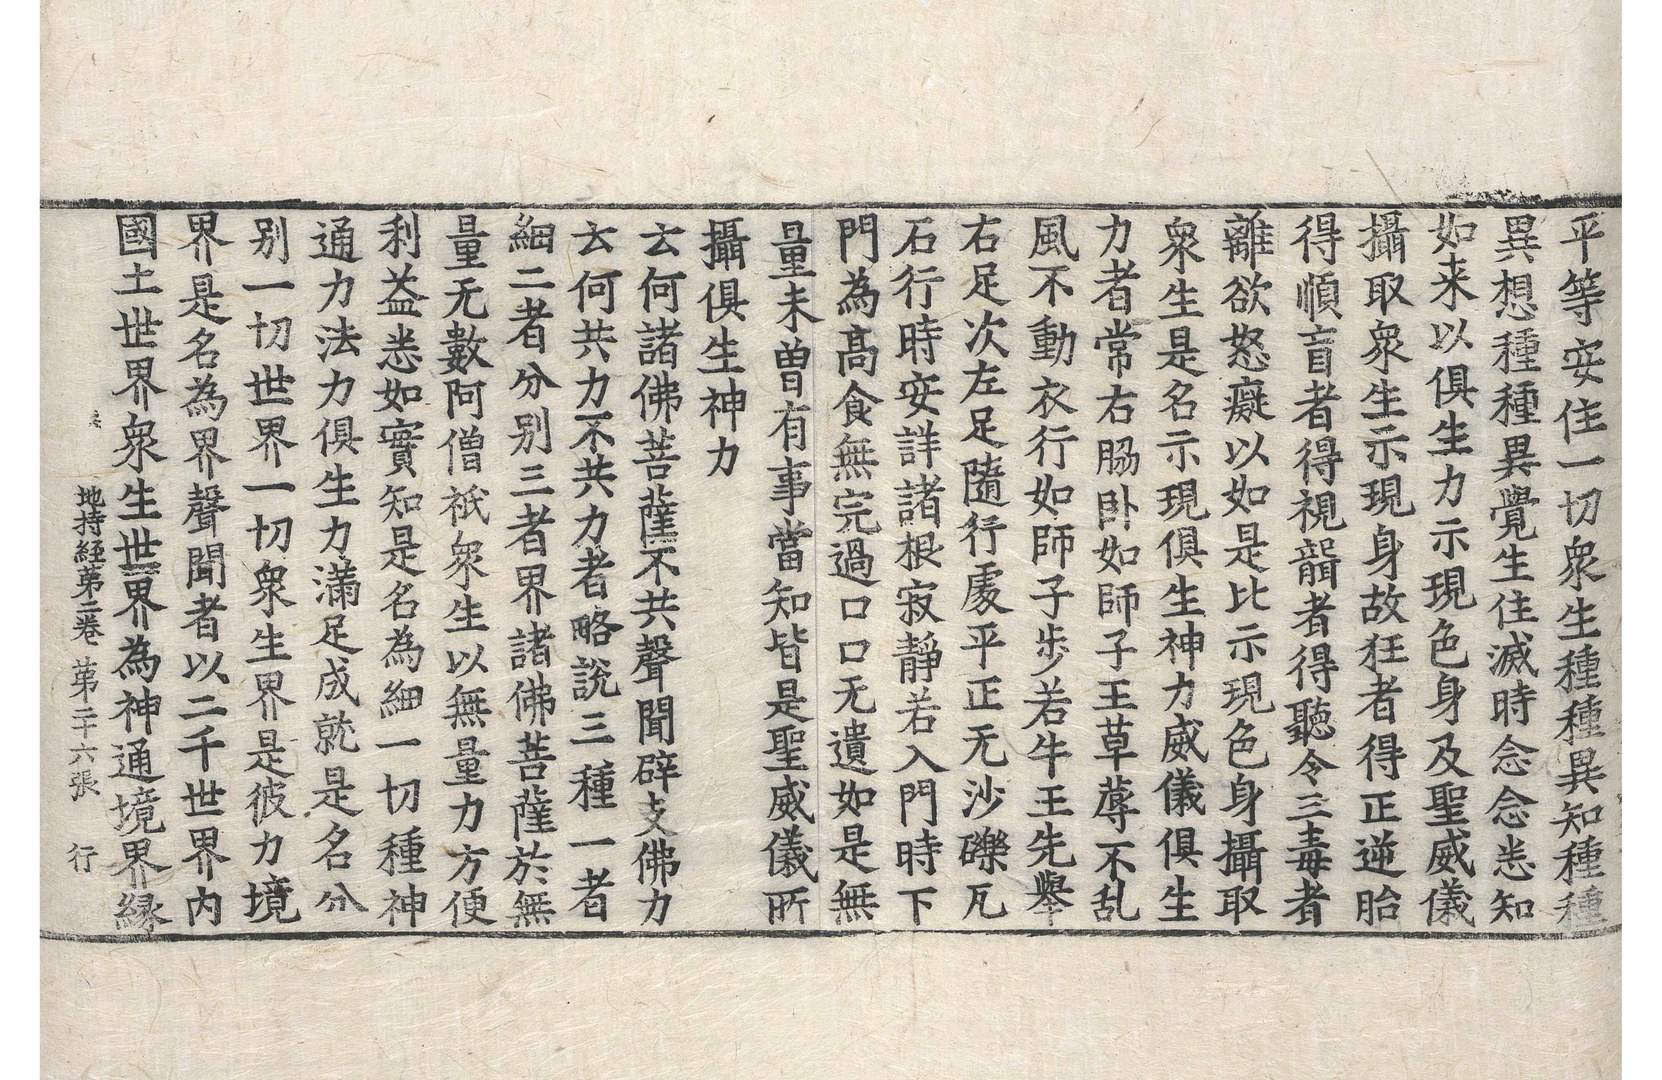 平等安住一切衆生種種異知種種
異想種種異覺生住滅時念念悉知
如来以俱生力示現色身及聖威儀
攝取衆生示現身故狂者得正逆胎
得順盲者得視聾者得聽令三毒者
離欲怒癡以如是比示現色身攝取
衆生是名示現俱生神力威儀俱生
力者常右脇卧如師子王草蓐不乱
風不動衣行如師子步若牛王先舉
右足次左足隨行處平正无沙礫瓦
石行時安詳諸根寂靜若入門時下
門為高食無完過口口无遺如是無
量未曾有事當知皆是聖威儀所
攝俱生神力
云何諸佛菩薩不共聲聞辟支佛力
云何共力不共力者略説三種一者
細二者分别三者界諸佛菩薩於無
量无數阿僧祇衆生以無量力方便
利益悉如實知是名為細一切種神
通力法力俱生力滿足成就是名分
别一切世界一切衆生界是彼力境
界是名為界聲聞者以二千世界内
國土世界衆生世界為神通境界緣
地持經第二卷 第二十六張 行